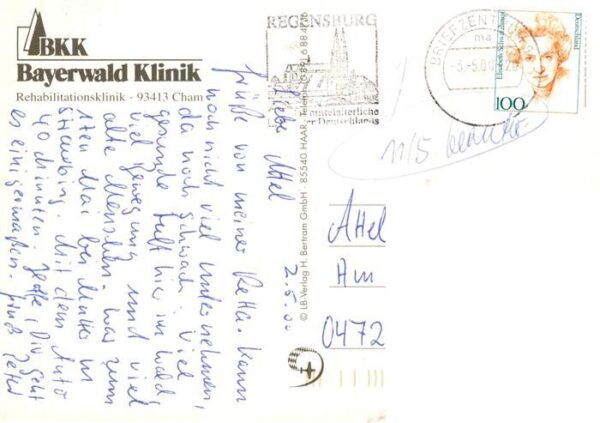 BKK
Bayerwald Klinik
Rehabilitationsklinik · 93413 Cham
REGENSBURG
mittelalterliche
Deutschlands
BRIEFZENTRUM
ma
-3.-5.00
Elisabeth Schwarzhaupt
Deutschland
100
11/5.
© LB-Verlag H. Bertram GmbH · 85540 HAAR · Telefon
2.5.00
Liebe Attel
Grüße von meiner Reha. Kann
noch nicht viel unternehmen,
da noch schwach. Viel
gesunde Luft hier im Wald,
viel Bewegung und viel
alte Menschen. War zum
1ten Mai bei Mutter in
Straubing. Mit dem Auto
40 Minuten. Hoffe, Dir geht
es einigermaßen. Gruß Peter
Attel
Am
0472